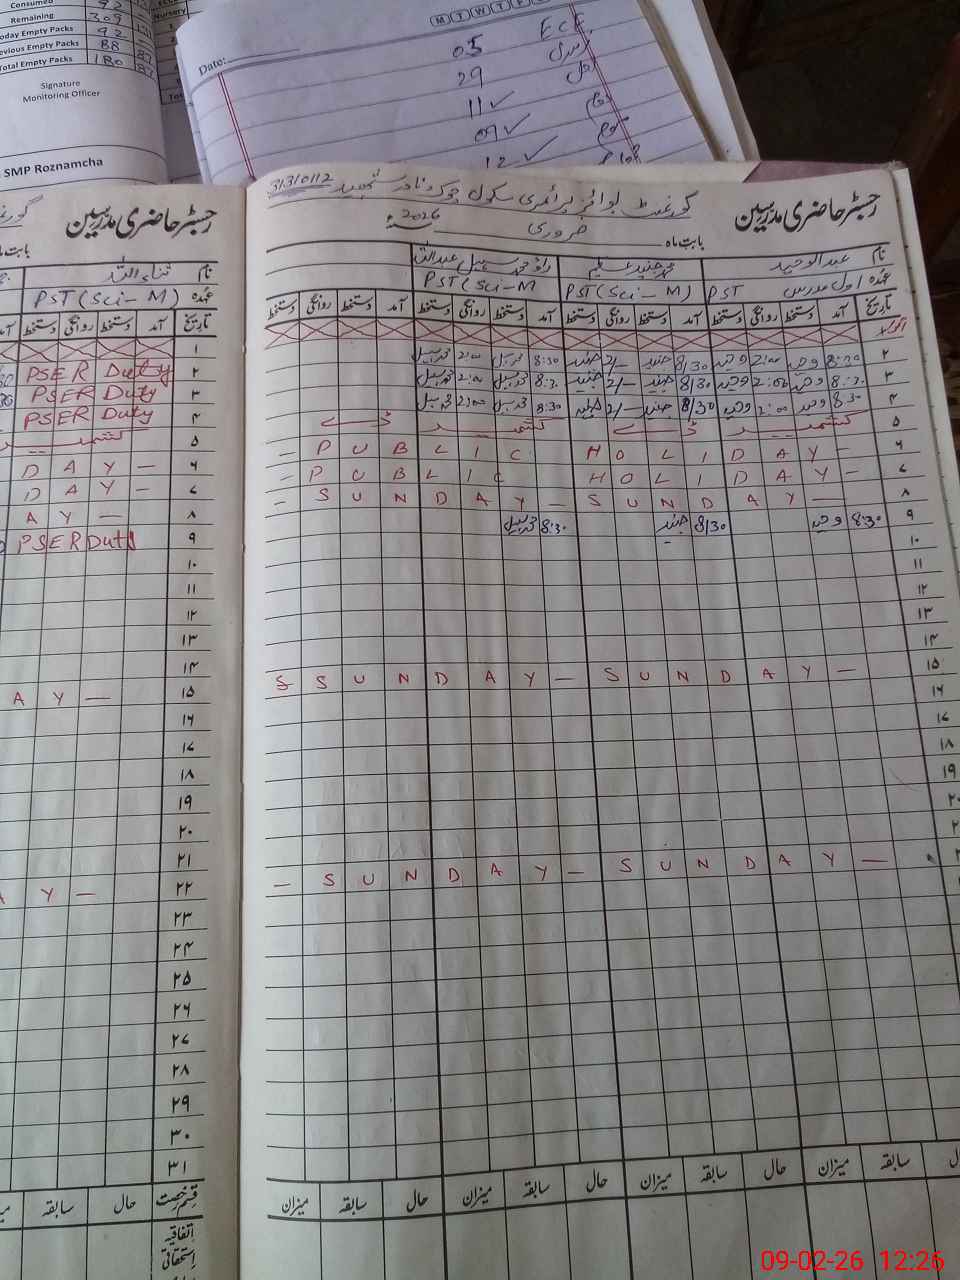 Consumed 92
Remaining 309
Today Empty Packs 92
Previous Empty Packs 88
Total Empty Packs 180
Signature
Monitoring Officer
SMP Roznamcha
M T W T F
Date:
05 ECE
29
11 ✓ اول
09 ✓ دوم
12 ✓ سوم
31310112
گورنمنٹ بوائز پرائمری سکول چوک نادر شہید
رجسٹر حاضری مدرسین
بابت ماہ فروری سنہ 2026ء
نام عبدالوحید
محمد جنید عظیم
راؤ محمد سہیل عبداللہ
عہدہ اول مدرس PST
PST (Sci-M)
PST (Sci-M
تاریخ آمد دستخط روانگی دستخط آمد دستخط روانگی دستخط آمد دستخط روانگی دستخط آمد دستخط روانگی دستخط
اتوار
۲ 8:30 وحید 2:00 وحید 8/30 جنید 2/- جنید 8:30 محمد سہیل 2:00 محمد سہیل
۳ 8:30 وحید 2:00 وحید 8/30 جنید 2/- جنید 8:30 محمد سہیل 2:00 محمد سہیل
۴ 8:30 وحید 2:00 وحید 8/30 جنید 2/- جنید 8:30 محمد سہیل 2:00 محمد سہیل
۵ کشمیر ڈے کشمیر ڈے
۶ - P U B L I C H O L I D A Y -
۷ - P U B L I C H O L I D A Y -
۸ - S U N D A Y - S U N D A Y -
۹ 8:30 وحید 8/30 جنید 8:30 محمد سہیل
۱۰
۱۱
۱۲
۱۳
۱۴
۱۵ S S U N D A Y - S U N D A Y -
۱۶
۱۷
۱۸
۱۹
- S U N D A Y - S U N D A Y -
حال سابقہ میزان حال سابقہ میزان حال سابقہ میزان حال سابقہ میزان
رجسٹر حاضری مدرسین
بابت ماہ
نام ثناء اللہ
عہدہ PST (Sci-M)
تاریخ آمد دستخط روانگی دستخط
۱
۲ PSER Duty
۳ PSER Duty
۴ PSER Duty
۵ کشمیر
۶ D A Y -
۷ D A Y -
۸ A Y -
۹ PSER Duty
۱۰
۱۱
۱۲
۱۳
۱۴
۱۵ A Y -
۱۶
۱۷
۱۸
۱۹
۲۰
۲۱
۲۲ A Y -
۲۳
۲۴
۲۵
۲۶
۲۷
۲۸
۲۹
۳۰
۳۱
قسم رخصت حال سابقہ
اتفاقیہ
استحقاقی
09-02-26 12:26